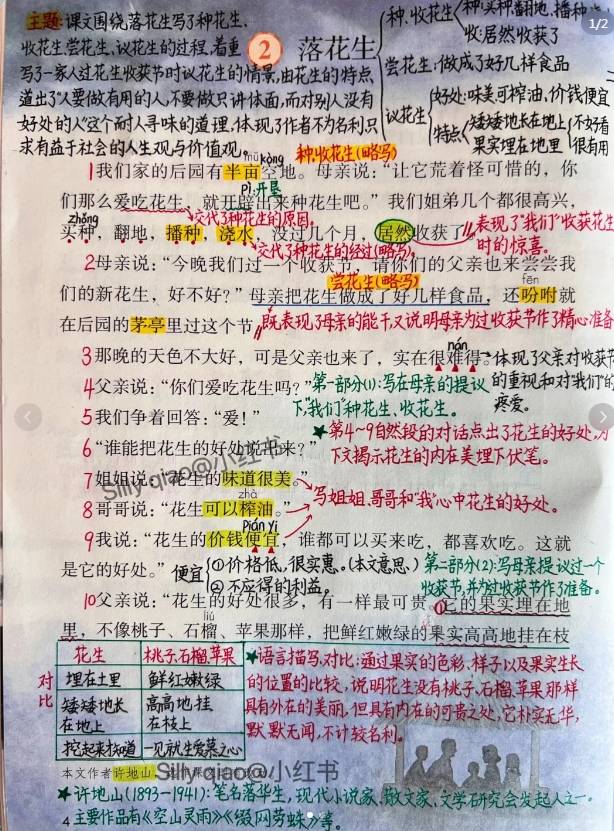 主题:课文围绕落花生写了种花生、
收花生、尝花生、议花生的过程,着重
写了一家人过花生收获节时议花生的情景,由花生的特点
道出了"人要做有用的人,不要做只讲体面,而对别人没有
好处的人"这个耐人寻味的道理,体现了作者不为名利,只
求有益于社会的人生观与价值观。
2 落花生
种、收花生
种:买种,翻地,播种
收:居然收获了
尝花生:做成了好几样食品
议花生
好处:味美可榨油,价钱便宜
特点
矮矮地长在地上
果实埋在地里
不好看
很有用
1/2
种、收花生(略写)
mǔ kòng
1我们家的后园有半亩空地。母亲说:"让它荒着怪可惜的,你
pì:开垦
们那么爱吃花生,就开辟出来种花生吧。"我们姐弟几个都很高兴,
zhǒng
交代了种花生的原因。
买种,翻地,播种,浇水,没过几个月,居然收获了。
表现了"我们"收获花生
时的惊喜。
交代了种花生的经过(略写)
2母亲说:"今晚我们过一个收获节,请你们的父亲也来尝尝我
尝花生(略写)
fēn
们的新花生,好不好?"母亲把花生做成了好几样食品,还吩咐就
在后园的茅亭里过这个节。
既表现了母亲的能干,又说明母亲为过收获节作了精心准备
nán
3那晚的天色不大好,可是父亲也来了,实在很难得。
体现了父亲对收获节
的重视和对"我们"的
疼爱。
4父亲说:"你们爱吃花生吗?"
第一部分(1):写在母亲的提议
下,"我们"种花生、收花生。
5我们争着回答:"爱!"
6"谁能把花生的好处说出来?"
★第4~9自然段的对话点出了花生的好处,为
下文揭示花生的内在美埋下伏笔。
7姐姐说:"花生的味道很美。"
zhà
8哥哥说:"花生可以榨油。"
写姐姐、哥哥和"我"心中花生的好处。
pián yi
9我说:"花生的价钱便宜,谁都可以买来吃,都喜欢吃。这就
是它的好处。"
便宜
①价格低,很实惠。(本文意思)
②不应得的利益。
第二部分(2):写母亲提议过一个
收获节,并为过收获节作了准备。
10父亲说:"花生的好处很多,有一样最可贵:①它的果实埋在地
liú
里,不像桃子、石榴、苹果那样,把鲜红嫩绿的果实高高地挂在枝
对比
花生 桃子、石榴、苹果
埋在土里 鲜红嫩绿
矮矮地长在地上 高高地挂在枝上
挖起来才知道 一见就生爱慕之心
★语言描写,对比:通过果实的色彩、样子以及果实生长
的位置的比较,说明花生没有桃子、石榴、苹果那样
具有外在的美丽,但具有内在的可贵之处,它朴实无华,
默默无闻,不计较名利。
本文作者许地山,
Silly.qiao@小红书
Silly.qiao@小红书
★许地山(1893—1941):笔名落华生,现代小说家、散文家,文学研究会发起人之一。
4 主要作品有《空山灵雨》《缀网劳蛛》等。